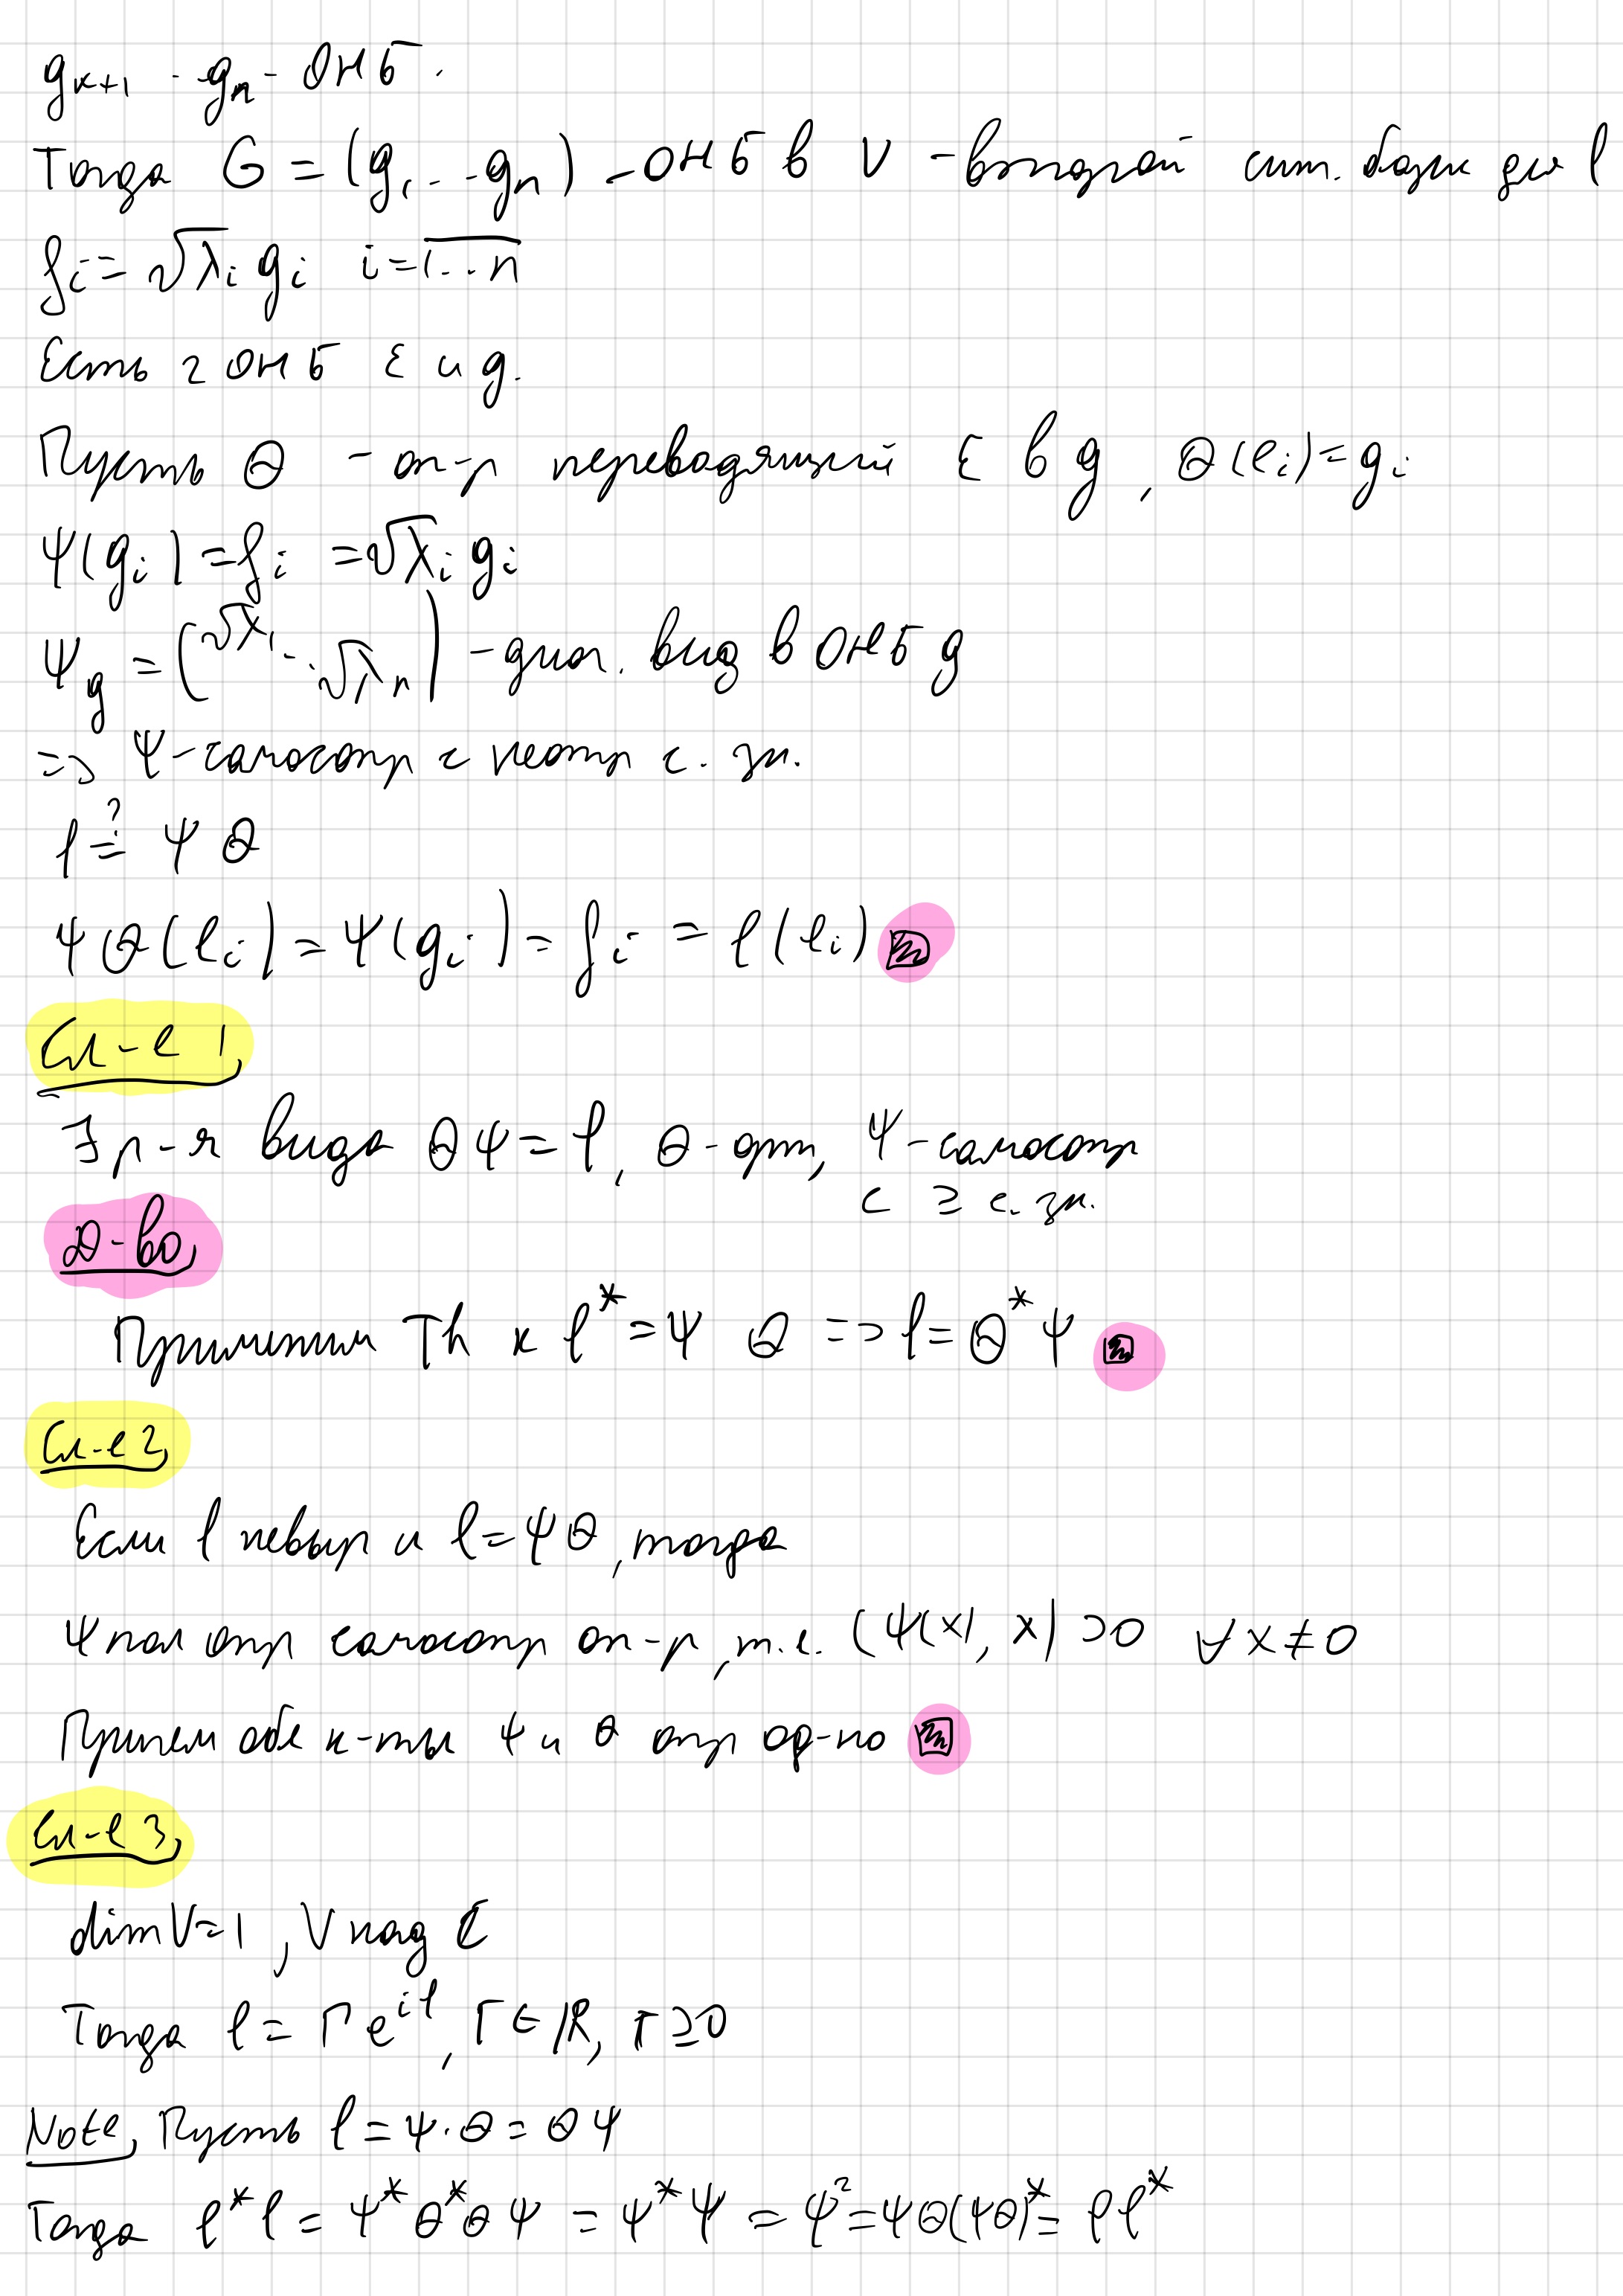 g_{k+1} .. g_n - ОНБ.
Тогда G = (g_1 .. g_n) - ОНБ в V - второй синг. базис для φ
f_i = √λ_i g_i i = \overline{1...n}
Есть 2 ОНБ ε и g.
Пусть Θ - оп-р переводящий ε в g, Θ(e_i) = g_i
Ψ(g_i) = f_i = √λ_i g_i
Ψ_g = (√λ_1 ... √λ_n) - диаг. вид в ОНБ g
=> Ψ - самосопр с неотр с. зн.
φ ≟ Ψ Θ
ΨΘ(e_i) = Ψ(g_i) = f_i = φ(e_i)
Сл-е 1,
∃ р-я вида ΘΨ = φ, Θ - орт, Ψ - самосопр
с ≥ с. зн.
Д-во,
Применим Th к φ^* = Ψ Θ => φ = Θ^* Ψ
Сл-е 2,
Если φ невыр и φ = ΨΘ, тогда
Ψ пол опр самосопр оп-р, т.е. (Ψ(x), x) > 0 ∀x ≠ 0
Причем обе к-ты Ψ и Θ опр од-но
Сл-е 3,
dim V = 1, V над ℂ
Тогда φ = r e^{iφ}, r ∈ ℝ, r ≥ 0
Note, Пусть φ = Ψ·Θ = ΘΨ
Тогда φ^*φ = Ψ^*Θ^*ΘΨ = Ψ^*Ψ = Ψ^2 = ΨΘ(ΨΘ)^* = φφ^*